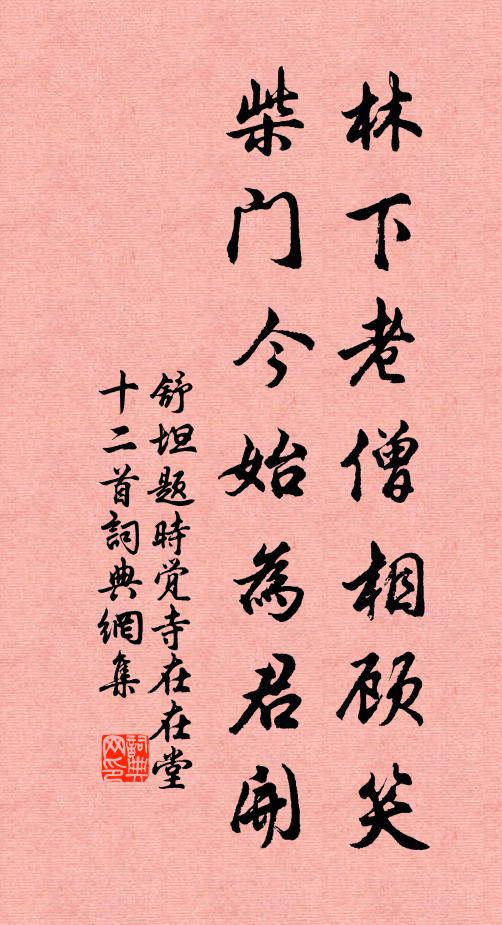 林下老僧相顾笑
柴门今始為君開
舒坦题時觉寺在在堂
十二首詞典網集
詞典
网印